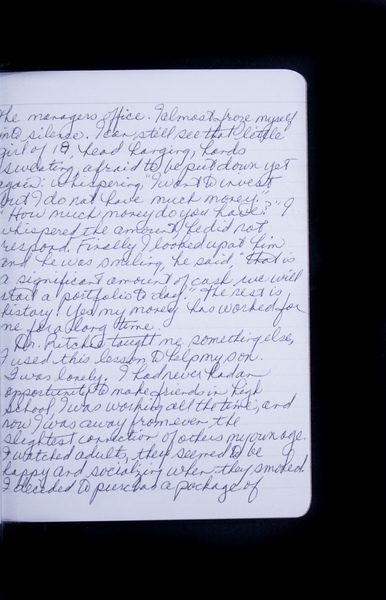 the managers office. I almost froze myself
into silence. I can still see that little
girl of 19, head hanging, hands
sweating, afraid to be put down yet
again. Whispering, "I want to invest
but I do not have much money."
"How much money do you have?" I
whispered the amount, he did not
respond. Finally I looked up at him
and he was smiling, he said, "that is
a significant amount of cash, we will
start a portfolio today." The rest is
history! Yes my money has worked for
me for a long time.
Dr. Ritchie taught me something else,
I used this lesson to help my son.
I was lonely. I had never had an
opportunity to make friends in high
school, I was working all the time, and
now I was away from even the
slightest connection of others my own age.
I watched adults, they seemed to be
happy and socializing when they smoked.
I decided to purchas a package of